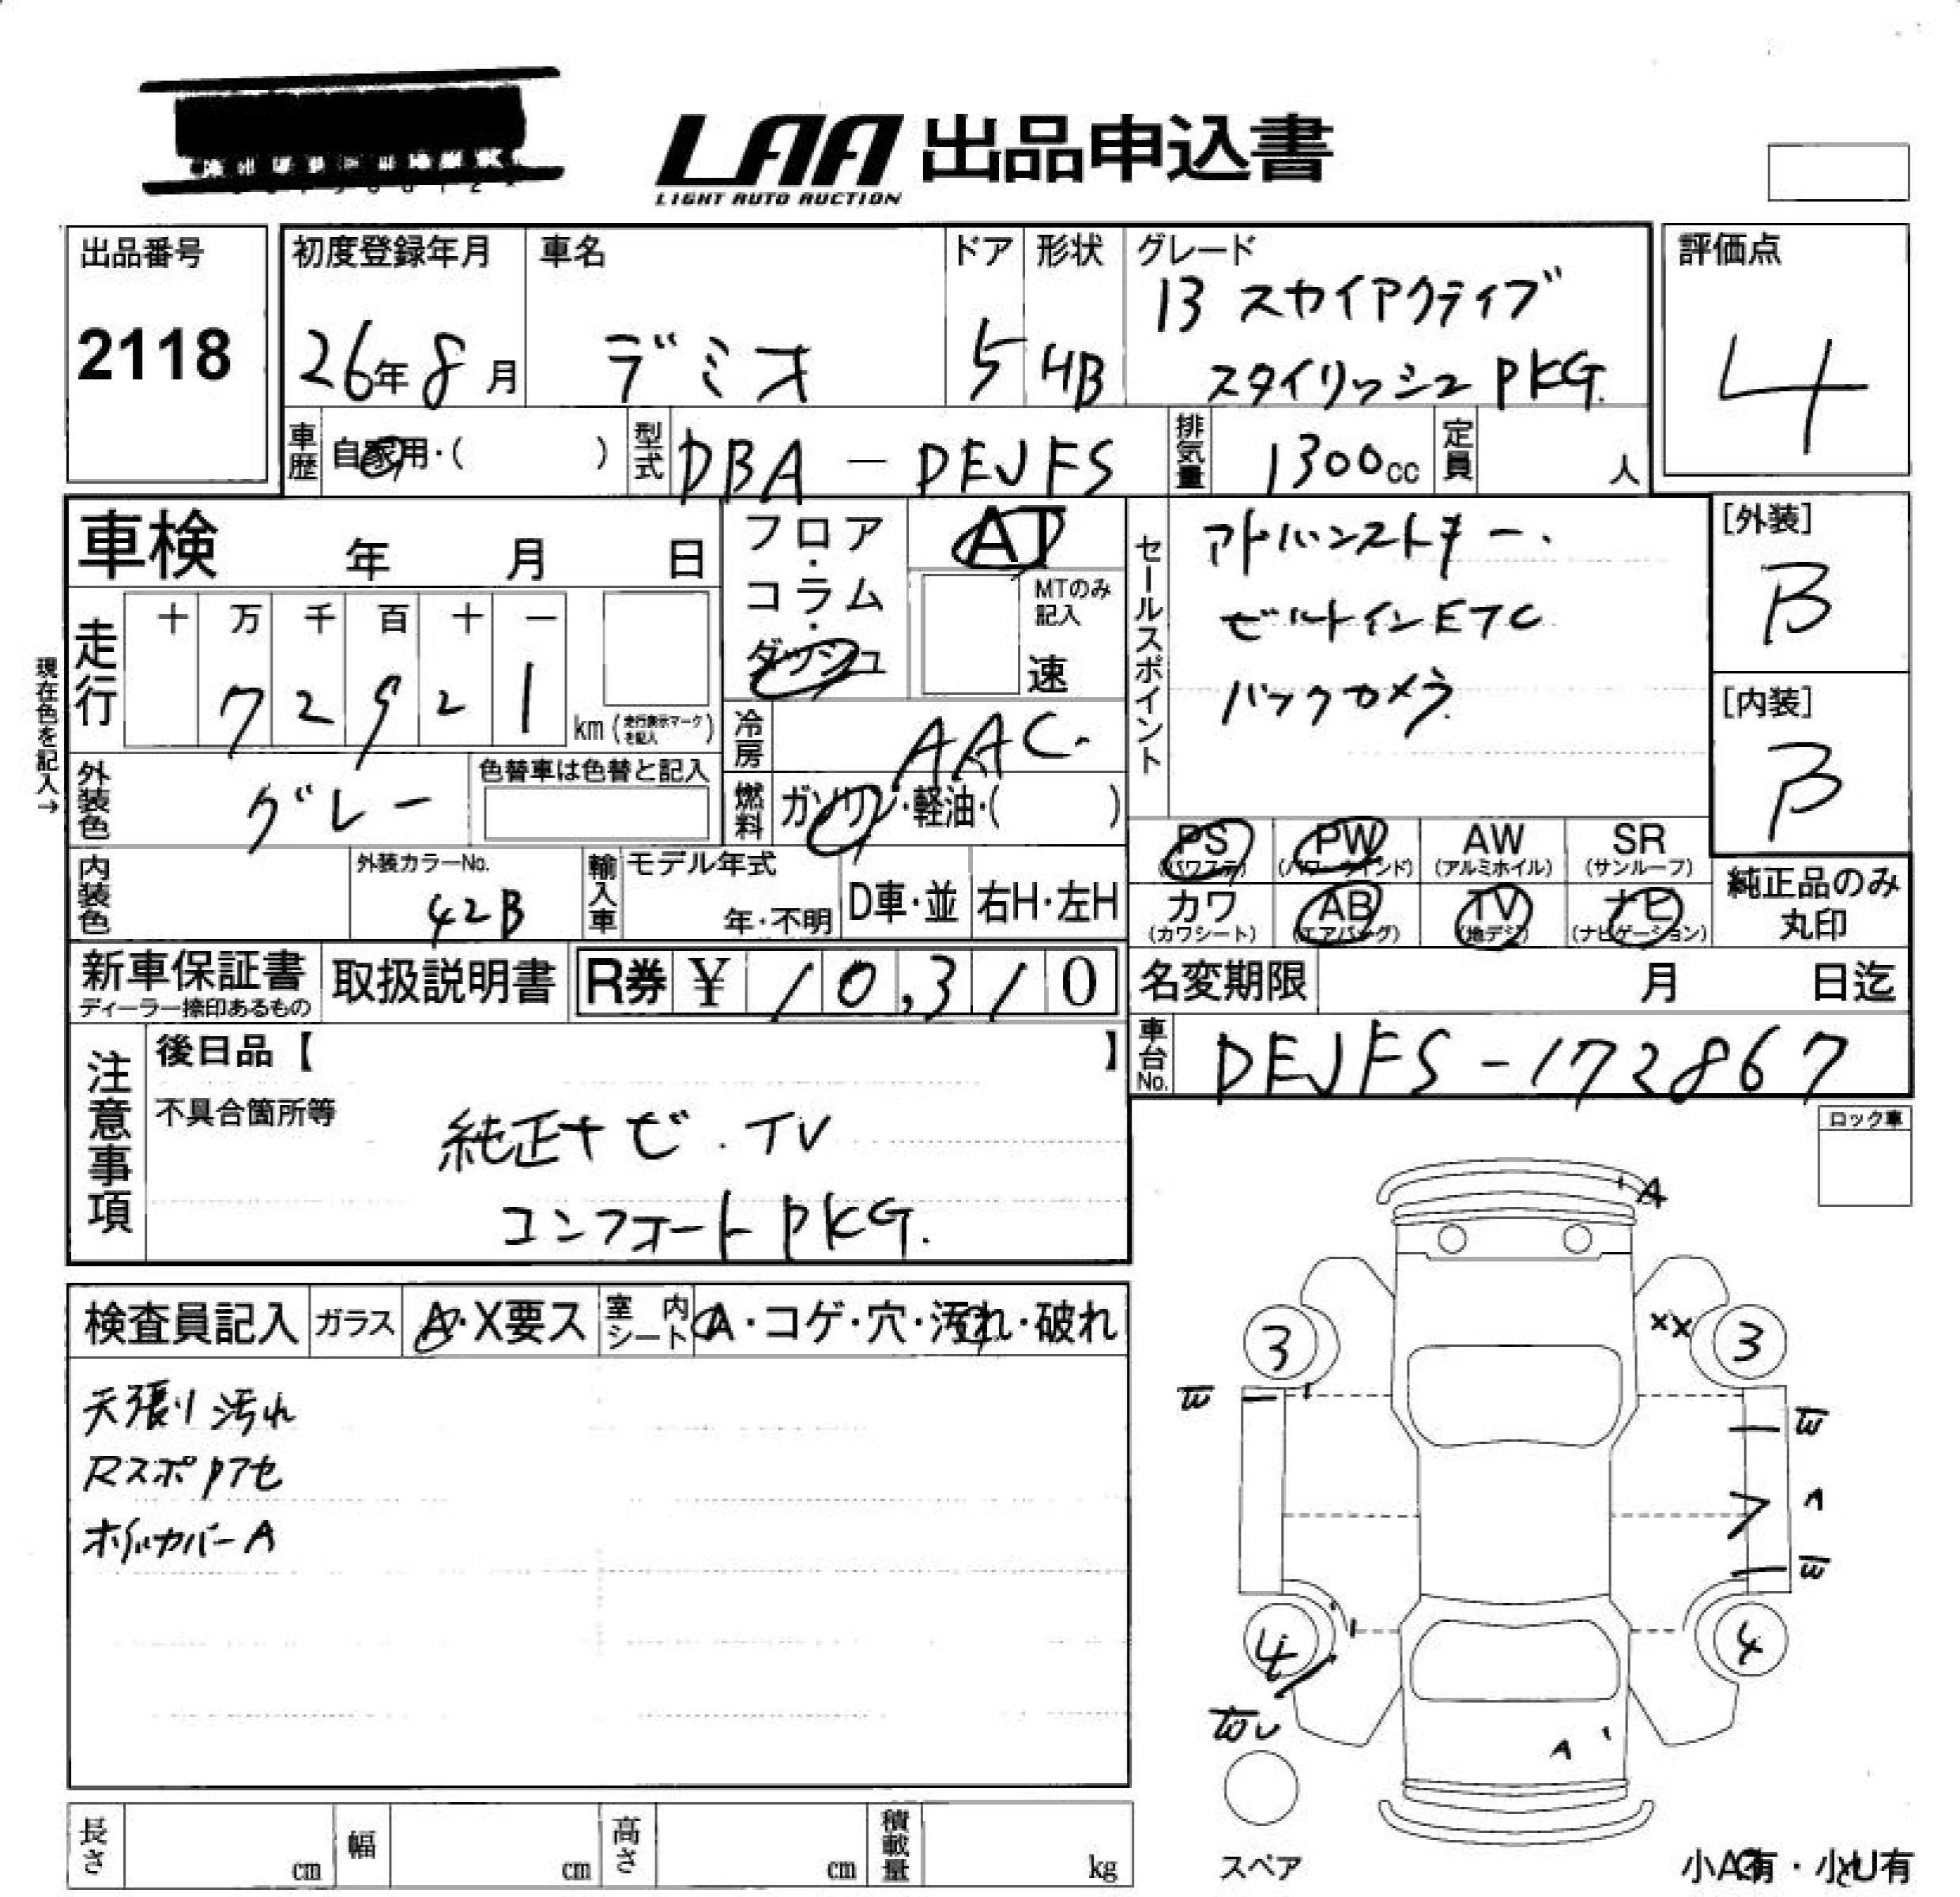 LAA 出品申込書
LIGHT AUTO AUCTION
出品番号
2118
初度登録年月
26年8月
車名
デミオ
ドア
5
形状
HB
グレード
13 スカイアクティブ
スタイリッシュ PKG.
評価点
4
車歴
自家用・( )
型式
DBA - DEJFS
排気量
1300cc
定員
人
車検 年 月 日
フロア・コラム・ダッシュ
AT
MTのみ記入
速
セールスポイント
アドバンストキー.
ビルトインETC
バックカメラ
[外装]
B
[内装]
B
現在色を記入→
走行
十 万 千 百 十 一
7 2 9 2 1
km (走行表示マークを記入)
冷房
AAC.
外装色
グレー
色替車は色替と記入
燃料
ガソリン・軽油・( )
PS
(パワステ)
PW
(パワーウインド)
AW
(アルミホイル)
SR
(サンルーフ)
カワ
(カワシート)
AB
(エアバッグ)
TV
(地デジ)
ナビ
(ナビゲーション)
純正品のみ
丸印
内装色
外装カラーNo.
42B
輸入車
モデル年式
年・不明
D車・並
右H・左H
新車保証書
ディーラー捺印あるもの
取扱説明書
R券 ¥ 10,310
名変期限 月 日迄
車台No.
DEJFS-172867
注意事項
後日品【 】
不具合箇所等
純正ナビ.TV
コンフォートPKG.
ロック車
検査員記入
ガラス
A・X要ス
室内シート
A・コゲ・穴・汚れ・破れ
天張り汚れ
Rスポアセ
ホイルカバーA
A
XX
3
3
4
4
A
A
スペア
小A有・小U有
長さ
cm
幅
cm
高さ
cm
積載量
kg